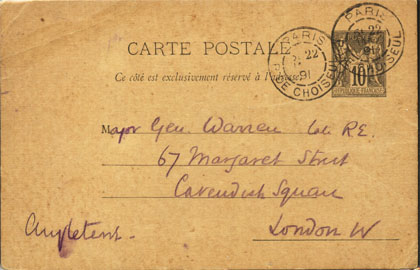 CARTE POSTALE
Ce côté est exclusivement réservé à l'adresse
PARIS
22
91
R. DE CHOISEUL
PARIS
22
91
CHOISEUL
10
REPUBLIQUE FRANÇAISE
M ajor Gen. Warren R.E.
67 Margaret Street
Cavendish Square
London W
Angleterre